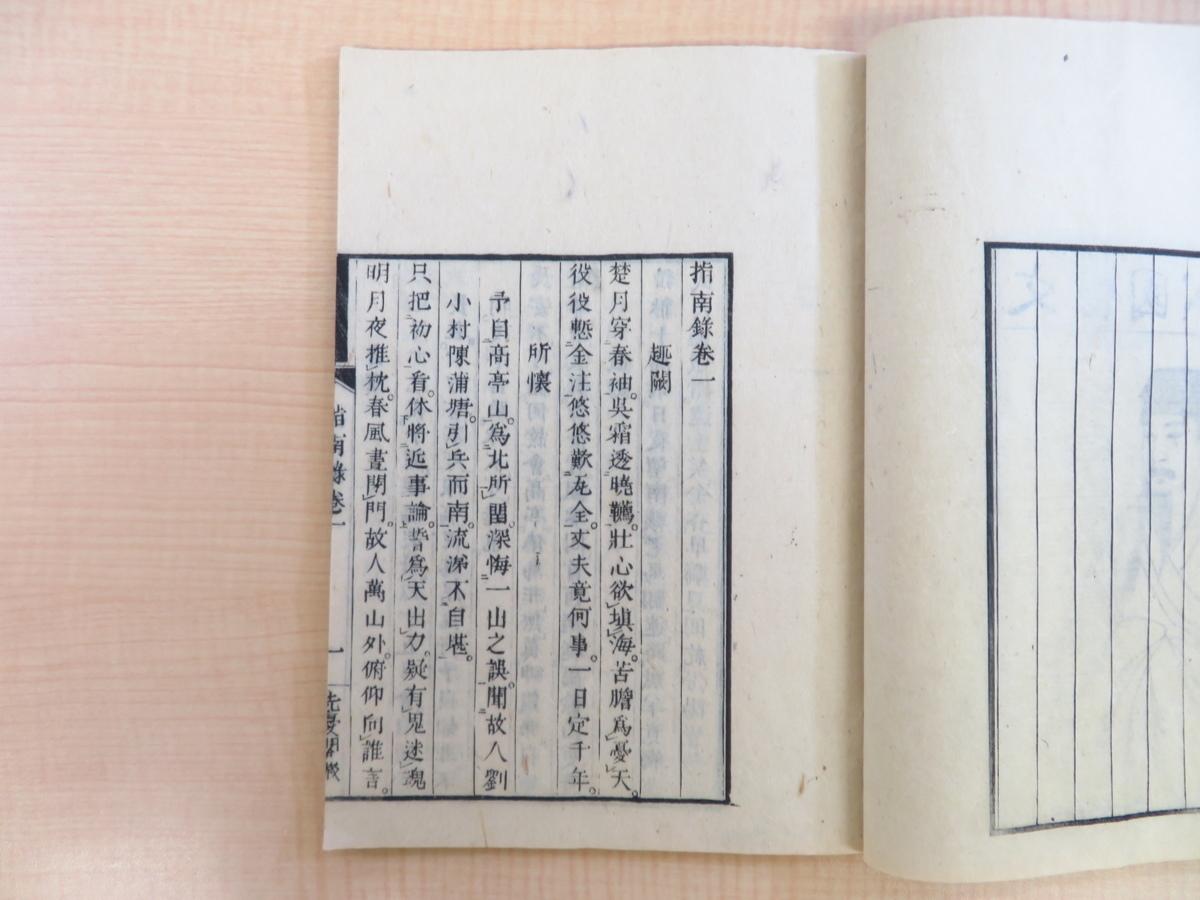 指南錄卷一
趣闕
楚月穿春袖。吳霜透曉韉。壯心欲塡海。苦膽爲憂天。
役役慙金注。悠悠歎瓦全。丈夫竟何事。一日定千年。
所懷
予自高亭山。爲北所留。深悔一山之誤。聞故人劉
小村陳蒲塘。引兵而南。流涕不自堪。
只把初心看。休將近事論。誓爲天出力。疑有鬼迷魂
明月夜推枕。春風晝閉門。故人萬山外。俯仰向誰言。
指南錄卷一
一